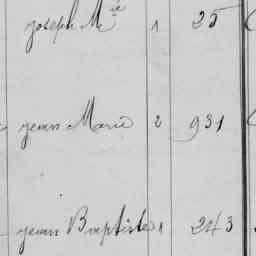 joseph M ie 1 25
jean Marie 2 931
jean Baptiste 1 243